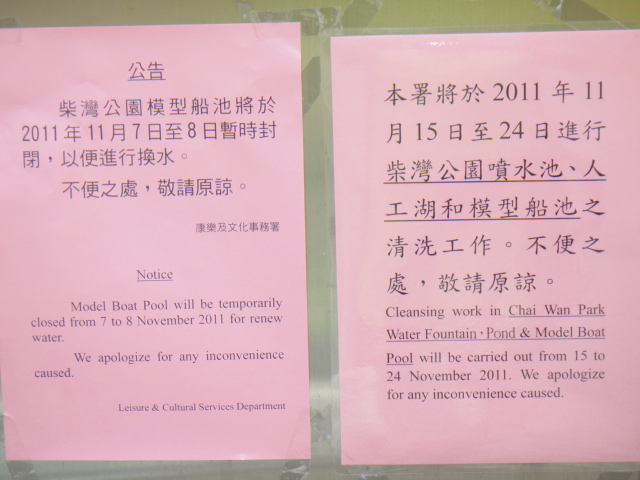 公告
柴灣公園模型船池將於
2011年11月7日至8日暫時封
閉，以便進行換水。
不便之處，敬請原諒。
康樂及文化事務署
Notice
Model Boat Pool will be temporarily
closed from 7 to 8 November 2011 for renew
water.
We apologize for any inconvenience
caused.
Leisure & Cultural Services Department
本署將於 2011 年 11
月 15 日至 24 日進行
柴灣公園噴水池、人
工湖和模型船池之
清洗工作。不便之
處，敬請原諒。
Cleansing work in Chai Wan Park
Water Fountain，Pond & Model Boat
Pool will be carried out from 15 to
24 November 2011. We apologize
for any inconvenience caused.